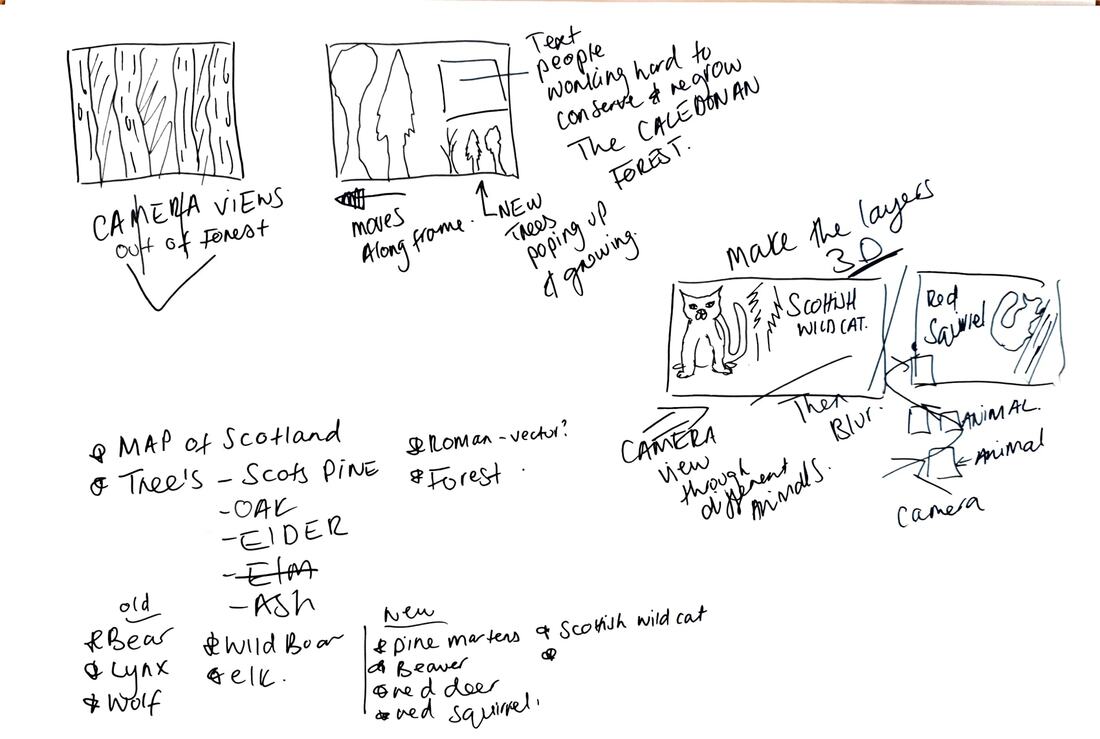 CAMERA VIEWS
out of Forest
moves
Along frame.
NEW
Trees
poping up
& growing.
Text
people
working hard to
conserve & regrow
The CALEDONAN
FOREST.
Make the layers
3D
SCOTTISH
WILD CAT.
Red
Squirrel
CAMERA
view
through
different
Animals.
Then
Blur.
ANIMAL.
Animal
Camera
MAP of Scotland
Tree's - Scots PINE
- OAK
- EIDER
- Elm
- ASh
Roman - vector?
Forest
old
Bear
Lynx
Wolf
Wild Boar
elk.
New
pine martens
Beaver
red deer
red squirrel.
Scottish wild cat